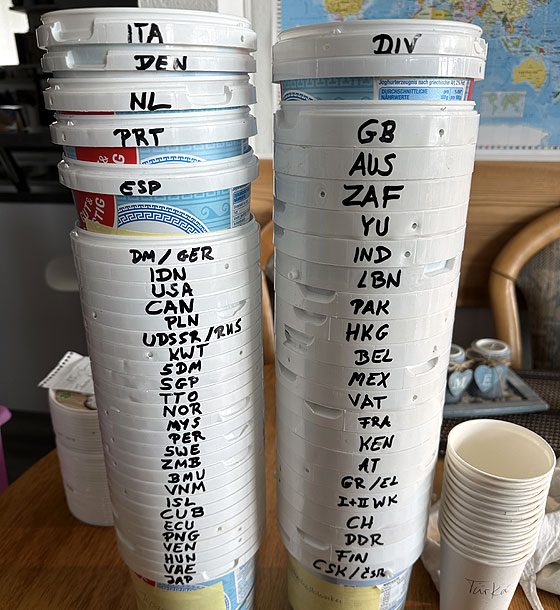 ITA
DEN
NL
PRT
ESP
DM/GER
IDN
USA
CAN
PLN
UDSSR/RUS
KWT
SDM
SGP
TTO
NOR
MYS
PER
SWE
ZMB
BMU
VNM
ISL
CUB
ECU
PNG
VEN
HUN
VAE
JAP
DIV
Joghurterzeugnis nach griechischer Art, 2% Fett
DURCHSCHNITTLICHE
NÄHRWERTE
GB
AUS
ZAF
YU
IND
LBN
PAK
HKG
BEL
MEX
VAT
FRA
KEN
AT
GR/EL
I+II WK
CH
DDR
FIN
CSK/ČSR
M
E
Tarka